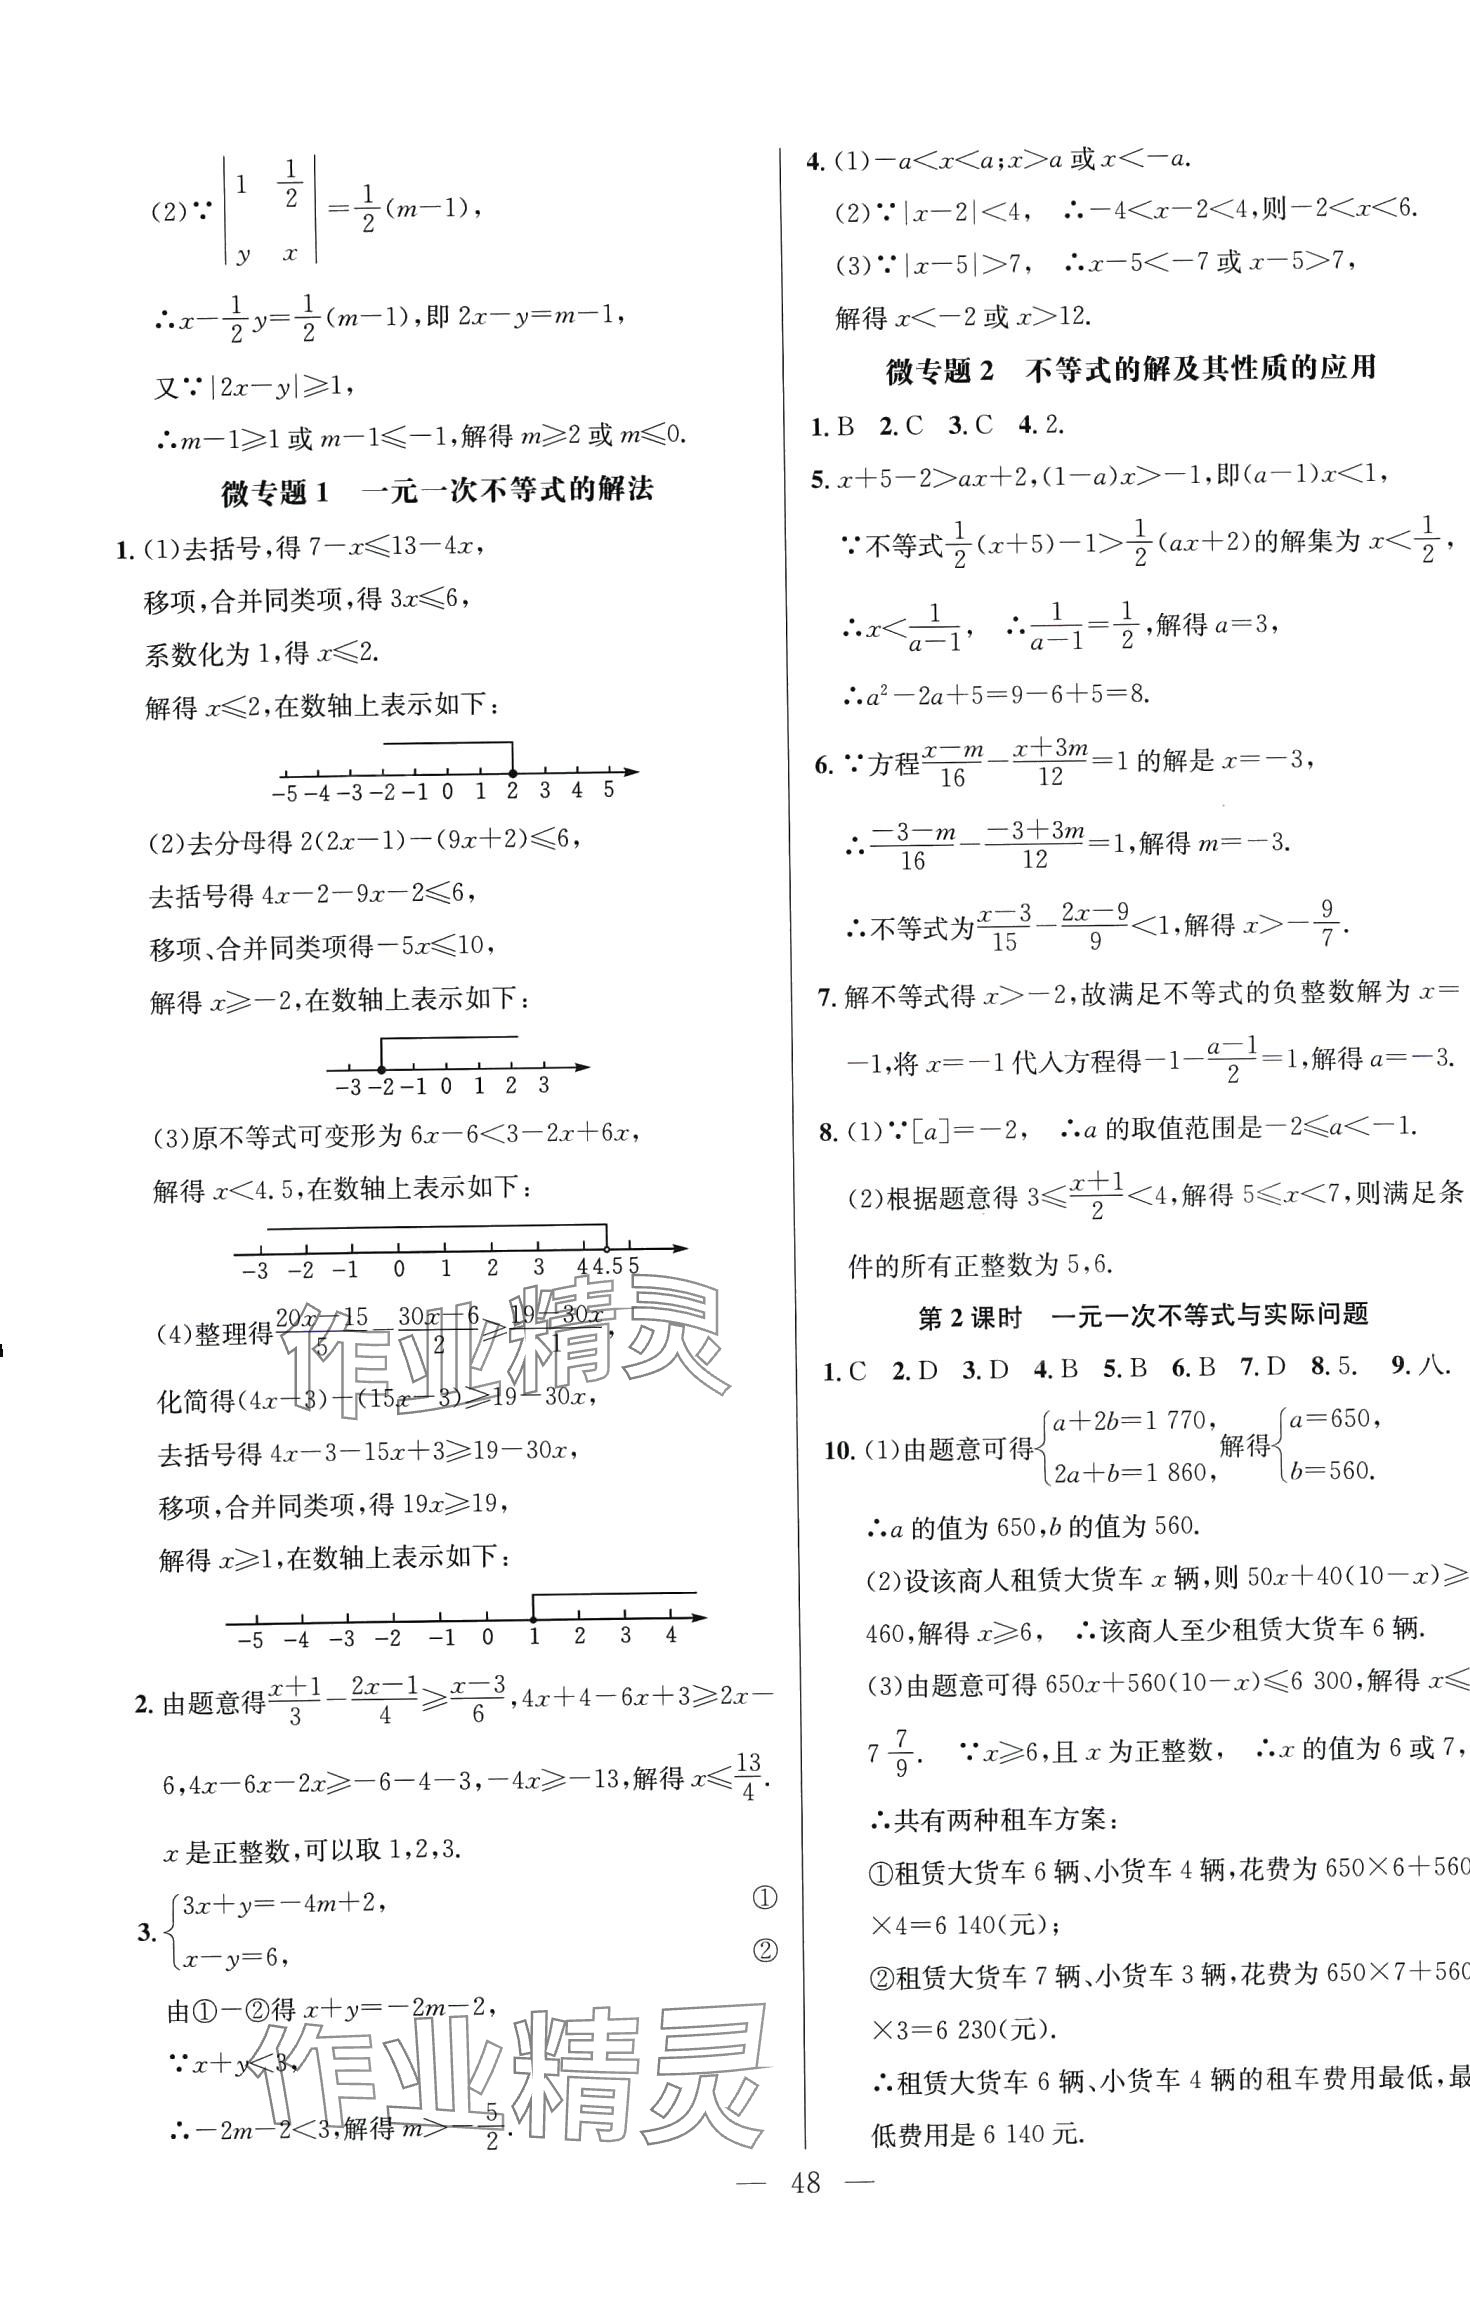 (2)∵|1 1/2; y x|=1/2(m-1),
∴x-1/2y=1/2(m-1),即2x-y=m-1,
又∵|2x-y|⩾1,
∴m-1⩾1或m-1⩽-1,解得m⩾2或m⩽0.
微专题1 一元一次不等式的解法
1.(1)去括号,得7-x⩽13-4x,
移项,合并同类项,得3x⩽6,
系数化为1,得x⩽2.
解得x⩽2,在数轴上表示如下:
-5 -4 -3 -2 -1 0 1 2 3 4 5
(2)去分母得2(2x-1)-(9x+2)⩽6,
去括号得4x-2-9x-2⩽6,
移项、合并同类项得-5x⩽10,
解得x⩾-2,在数轴上表示如下:
-3 -2 -1 0 1 2 3
(3)原不等式可变形为6x-6<3-2x+6x,
解得x<4.5,在数轴上表示如下:
-3 -2 -1 0 1 2 3 4 4.5 5
(4)整理得(20x-15)/5-(30x-6)/2⩾(19-30x)/1,
化简得(4x-3)-(15x-3)⩾19-30x,
去括号得4x-3-15x+3⩾19-30x,
移项,合并同类项,得19x⩾19,
解得x⩾1,在数轴上表示如下:
-5 -4 -3 -2 -1 0 1 2 3 4
2.由题意得(x+1)/3-(2x-1)/4⩾(x-3)/6,4x+4-6x+3⩾2x-
6,4x-6x-2x⩾-6-4-3,-4x⩾-13,解得x⩽13/4.
x是正整数,可以取1,2,3.
3.{3x+y=-4m+2, ①
x-y=6, ②
由①-②得x+y=-2m-2,
∵x+y<3,
∴-2m-2<3,解得m>-5/2.
4.(1)-a<x<a;x>a或x<-a.
(2)∵|x-2|<4, ∴-4<x-2<4,则-2<x<6.
(3)∵|x-5|>7, ∴x-5<-7或x-5>7,
解得x<-2或x>12.
微专题2 不等式的解及其性质的应用
1.B 2.C 3.C 4.2.
5.x+5-2>ax+2,(1-a)x>-1,即(a-1)x<1,
∵不等式1/2(x+5)-1>1/2(ax+2)的解集为x<1/2,
∴x<1/(a-1), ∴1/(a-1)=1/2,解得a=3,
∴a²-2a+5=9-6+5=8.
6.∵方程(x-m)/16-(x+3m)/12=1的解是x=-3,
∴(-3-m)/16-(-3+3m)/12=1,解得m=-3.
∴不等式为(x-3)/15-(2x-9)/9<1,解得x>-9/7.
7.解不等式得x>-2,故满足不等式的负整数解为x=
-1,将x=-1代入方程得-1-(a-1)/2=1,解得a=-3.
8.(1)∵[a]=-2, ∴a的取值范围是-2⩽a<-1.
(2)根据题意得3⩽(x+1)/2<4,解得5⩽x<7,则满足条
件的所有正整数为5,6.
第2课时 一元一次不等式与实际问题
1.C 2.D 3.D 4.B 5.B 6.B 7.D 8.5. 9.八.
10.(1)由题意可得{a+2b=1 770, 2a+b=1 860, 解得{a=650, b=560.
∴a的值为650,b的值为560.
(2)设该商人租赁大货车x辆,则50x+40(10-x)⩾
460,解得x⩾6, ∴该商人至少租赁大货车6辆.
(3)由题意可得650x+560(10-x)⩽6 300,解得x⩽
7 7/9. ∵x⩾6,且x为正整数, ∴x的值为6或7,
∴共有两种租车方案:
①租赁大货车6辆、小货车4辆,花费为650×6+560
×4=6 140(元);
②租赁大货车7辆、小货车3辆,花费为650×7+560
×3=6 230(元).
∴租赁大货车6辆、小货车4辆的租车费用最低,最
低费用是6 140元.
— 48 —
作业精灵
作业精灵